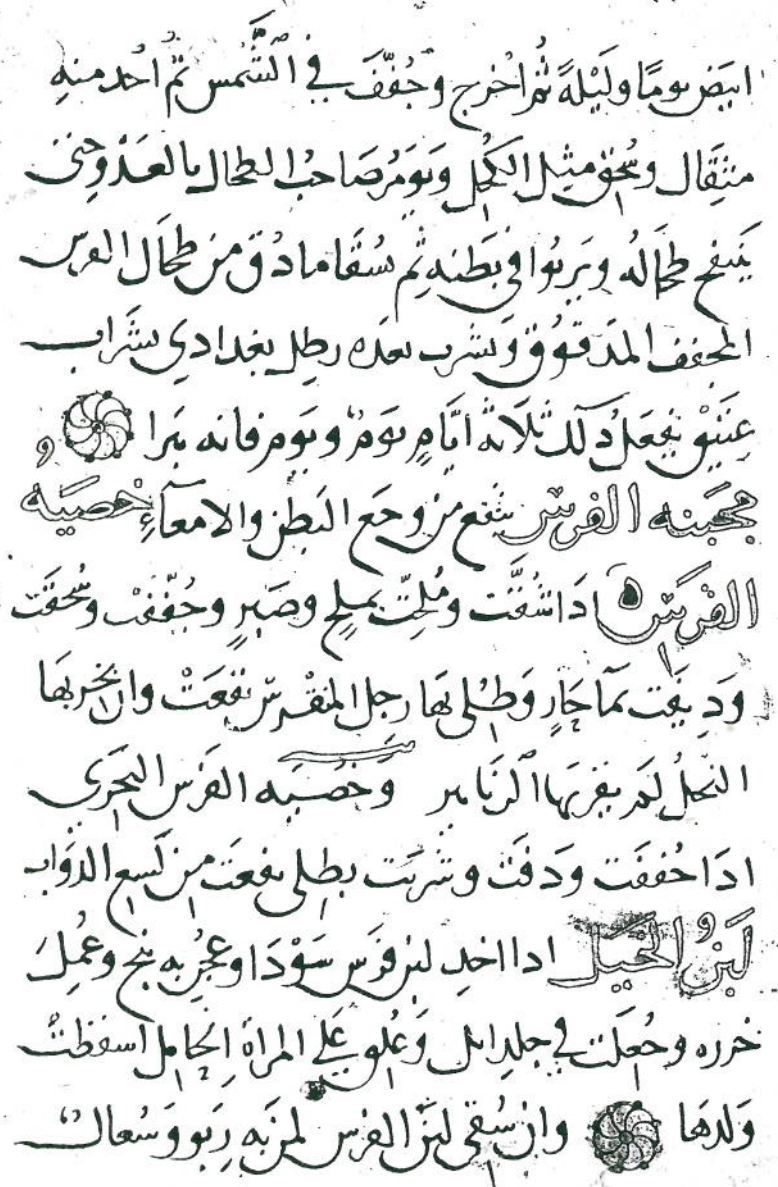 ابيض يومًا وليلةً ثُم اخرج وجُفّفَ في الشَّمس ثم اخد منه
مثقال وسُحق مثل الكُحل ويومرُ صَاحبُ الطحال بالعَدْو حتى
يَنتفح طحَالُه ويَربُوا في بَطنه ثم يسُقَا ما دُق من طحَال الفرس
المجفف المدَقوُق وَيشرب بعده رطل بغدادي بشَراب
عتَيْق يفعَل دَلك ثَلاثة ايَّامٍ يومٌ ويَوم فانه يَبرا
مجَبنه الفرس ينفع من وجَع البَطن والامعَآءِ خصيَهُ
الفرَس ادَا شُقَّت ومُلِحَت بملحٍ وصَبرٍ وجُفّفت وسُحقَت
وَديفَت بمآ حَارٍ وَطُلي بهَا رجل المنقْرس نفعَتْ وان بخر بهَا
النحلُ لَم يقربَها الزنَابير وخصيه الفرَس البحَري
ادَا جُففَت وَدقَت وشُربَت بطلى نفعَت من لَسع الدوَاب
لَبنُ الخَيَل ادا اخد لبن فرَس سَوْدَا وعجُن به بنج وعُملَ
خرزه وجُعلَت في جلد ايل وَعُلق عَلي المراة الحَامل اسقطتْ
وَلدهَا وان سُقي لبَن الفرس لمن به رَبو وَسُعال